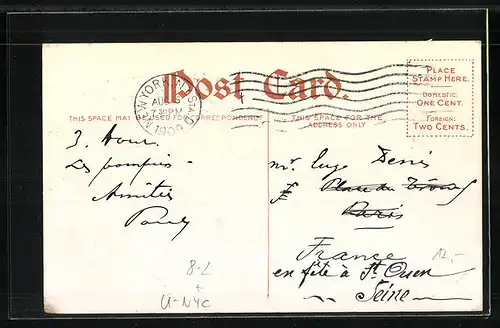 Post Card.
NEW YORK, N.Y. STA. O
AUG
7 30 PM
1909
PLACE
STAMP HERE.
DOMESTIC:
ONE CENT.
FOREIGN:
TWO CENTS.
THIS SPACE MAY BE USED FOR CORRESPONDENCE
THIS SPACE FOR THE
ADDRESS ONLY
3. Aour.
Les pompiers
Amitiés
Paul
Mr. Denis
Place du
Paris
France
12,-
en fête à St Ouen
Seine
8-2
+
U-NYC